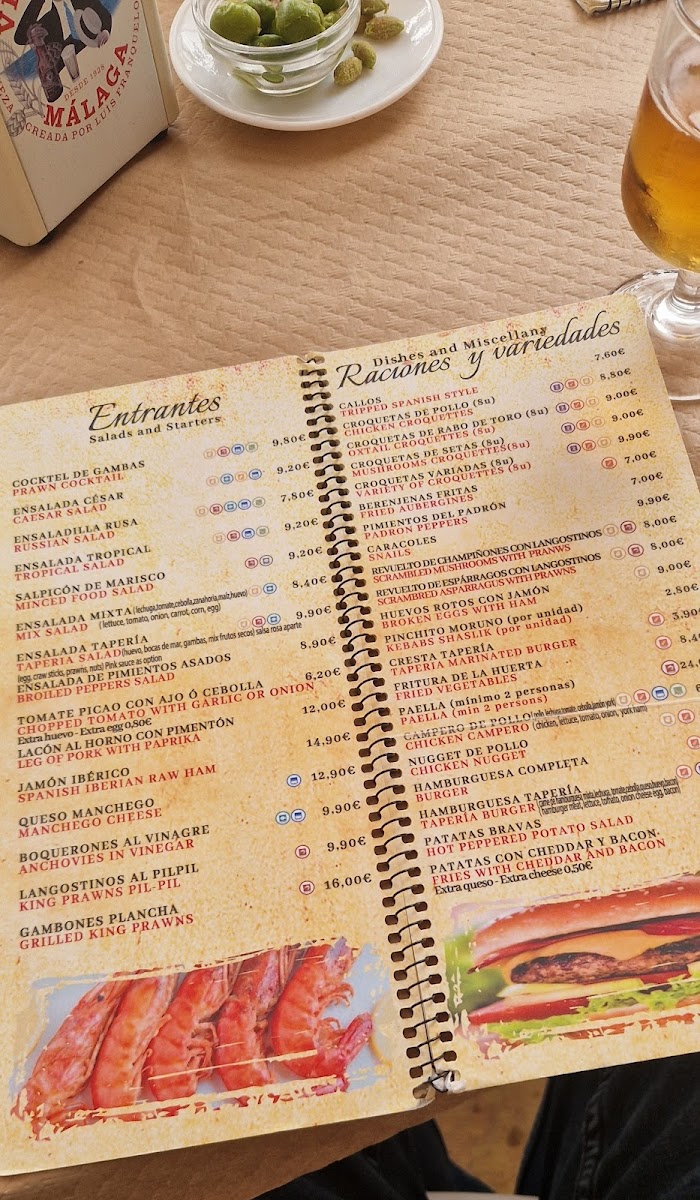 VI
MÁLAGA
DESDE 1928
CREADA POR LUIS FRANQUELO
Entrantes
Salads and Starters
COCKTEL DE GAMBAS 9,80€
PRAWN COCKTAIL
ENSALADA CÉSAR 9,20€
CAESAR SALAD
ENSALADILLA RUSA 7,80€
RUSSIAN SALAD
ENSALADA TROPICAL 9,20€
TROPICAL SALAD
SALPICÓN DE MARISCO 9,20€
MINCED FOOD SALAD
ENSALADA MIXTA (lechuga,tomate,cebolla,zanahoria,maíz,huevo) 8,40€
MIX SALAD (lettuce, tomato, onion, carrot, corn, egg)
ENSALADA TAPERÍA 9,90€
TAPERIA SALAD (huevo, bocas de mar, gambas, mix frutos secos) salsa rosa aparte
(egg, craw sticks, prawns, nuts) Pink sauce as option
ENSALADA DE PIMIENTOS ASADOS 8,90€
BROILED PEPPERS SALAD
TOMATE PICAO CON AJO Ó CEBOLLA 6,20€
CHOPPED TOMATO WITH GARLIC OR ONION
Extra huevo - Extra egg 0,50€
LACÓN AL HORNO CON PIMENTÓN 12,00€
LEG OF PORK WITH PAPRIKA
JAMÓN IBÉRICO 14,90€
SPANISH IBERIAN RAW HAM
QUESO MANCHEGO 12,90€
MANCHEGO CHEESE
BOQUERONES AL VINAGRE 9,90€
ANCHOVIES IN VINEGAR
LANGOSTINOS AL PILPIL 9,90€
KING PRAWNS PIL-PIL
GAMBONES PLANCHA 16,00€
GRILLED KING PRAWNS
Dishes and Miscellany
Raciones y variedades
CALLOS 7,60€
TRIPPED SPANISH STYLE
CROQUETAS DE POLLO (8u) 8,80€
CHICKEN CROQUETTES
CROQUETAS DE RABO DE TORO (8u) 9,00€
OXTAIL CROQUETTES (8u)
CROQUETAS DE SETAS (8u) 9,00€
MUSHROOMS CROQUETTES(8u)
CROQUETAS VARIADAS (8u) 9,90€
VARIETY OF CROQUETTES (8u)
BERENJENAS FRITAS 7,00€
FRIED AUBERGINES
PIMIENTOS DEL PADRÓN 7,00€
PADRON PEPPERS
CARACOLES 9,90€
SNAILS
REVUELTO DE CHAMPIÑONES CON LANGOSTINOS 8,00€
SCRAMBLED MUSHROOMS WITH PRANWS
REVUELTO DE ESPÁRRAGOS CON LANGOSTINOS 8,00€
SCRAMBRED ASPARRAGUS WITH PRAWNS
HUEVOS ROTOS CON JAMÓN 9,00€
BROKEN EGGS WITH HAM
PINCHITO MORUNO (por unidad) 2,80€
KEBABS SHASLIK (por unidad)
CRESTA TAPERÍA 3,90€
TAPERIA MARINATED BURGER
FRITURA DE LA HUERTA 8,4
FRIED VEGETABLES
PAELLA (mínimo 2 personas) 24,
PAELLA (min 2 persons)
CAMPERO DE POLLO (pollo, lechuga,tomate, cebolla,jamón york)
CHICKEN CAMPERO (chicken, lettuce, tomato, onion, york ham)
NUGGET DE POLLO
CHICKEN NUGGET
HAMBURGUESA COMPLETA
BURGER
HAMBURGUESA TAPERÍA (carne de hamburguesa mixta,lechuga, tomate,cebolla,queso,huevo,bacon)
TAPERÍA BURGER (hamburger meat, lettuce, tomato, onion, cheese egg, bacon)
PATATAS BRAVAS
HOT PEPPERED POTATO SALAD
PATATAS CON CHEDDAR Y BACON.
FRIES WITH CHEDDAR AND BACON
Extra queso - Extra cheese 0,50€